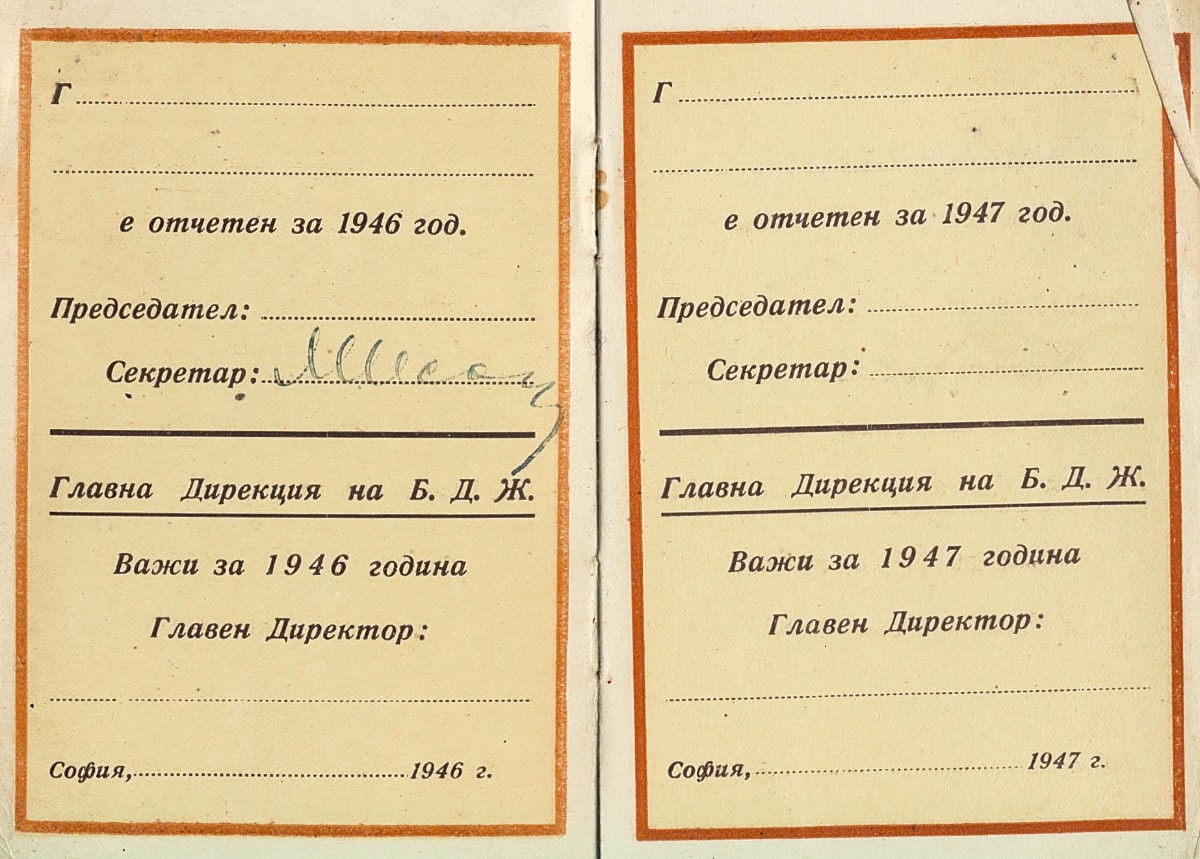 Г
е отчетен за 1946 год.
Председател:
Секретар:
Главна Дирекция на Б. Д. Ж.
Важи за 1946 година
Главен Директор:
София, 1946 г.
Г
е отчетен за 1947 год.
Председател:
Секретар:
Главна Дирекция на Б. Д. Ж.
Важи за 1947 година
Главен Директор:
София, 1947 г.